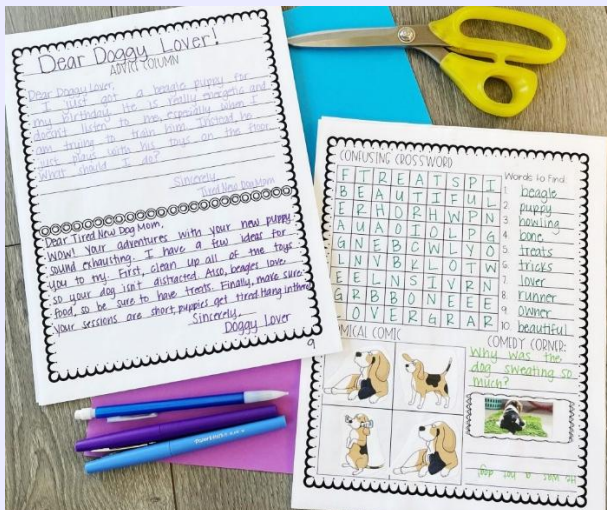 Dear Doggy Lover!
ADVICE COLUMN
Dear Doggy Lover,
I just got a beagle puppy for
my birthday. He is really energetic and
doesn't listen to me, especially when I
am trying to train him. Instead he
just plays with his toys on the floor.
What should I do?
Sincerely,
Tired New Dog Mom
Dear Tired New Dog Mom,
WOW! Your adventures with your new puppy
sound exhausting. I have a few ideas for
you to try. First, clean up all of the toys
so your dog isn't distracted. Also, beagles love
food, so be sure to have treats. Finally, make sure
your sessions are short, puppies get tired. Hang in there
Sincerely,
Doggy Lover
9
CONFUSING CROSSWORD
F T R E A T S P I
B E A U T I F U L
E R H D R H W P N
A U A O I O L P G
G N E B C W L Y O
L N V B K L O T W
E E L N S I V R N
G R B B O N E E E
L O V E R G R A R
Words to Find:
1. beagle
2. puppy
3. howling
4. bone
5. treats
6. tricks
7. lover
8. runner
9. owner
10. beautiful
COMICAL COMIC
COMEDY CORNER:
Why was the
dog sweating so
much?
He was a hot dog!